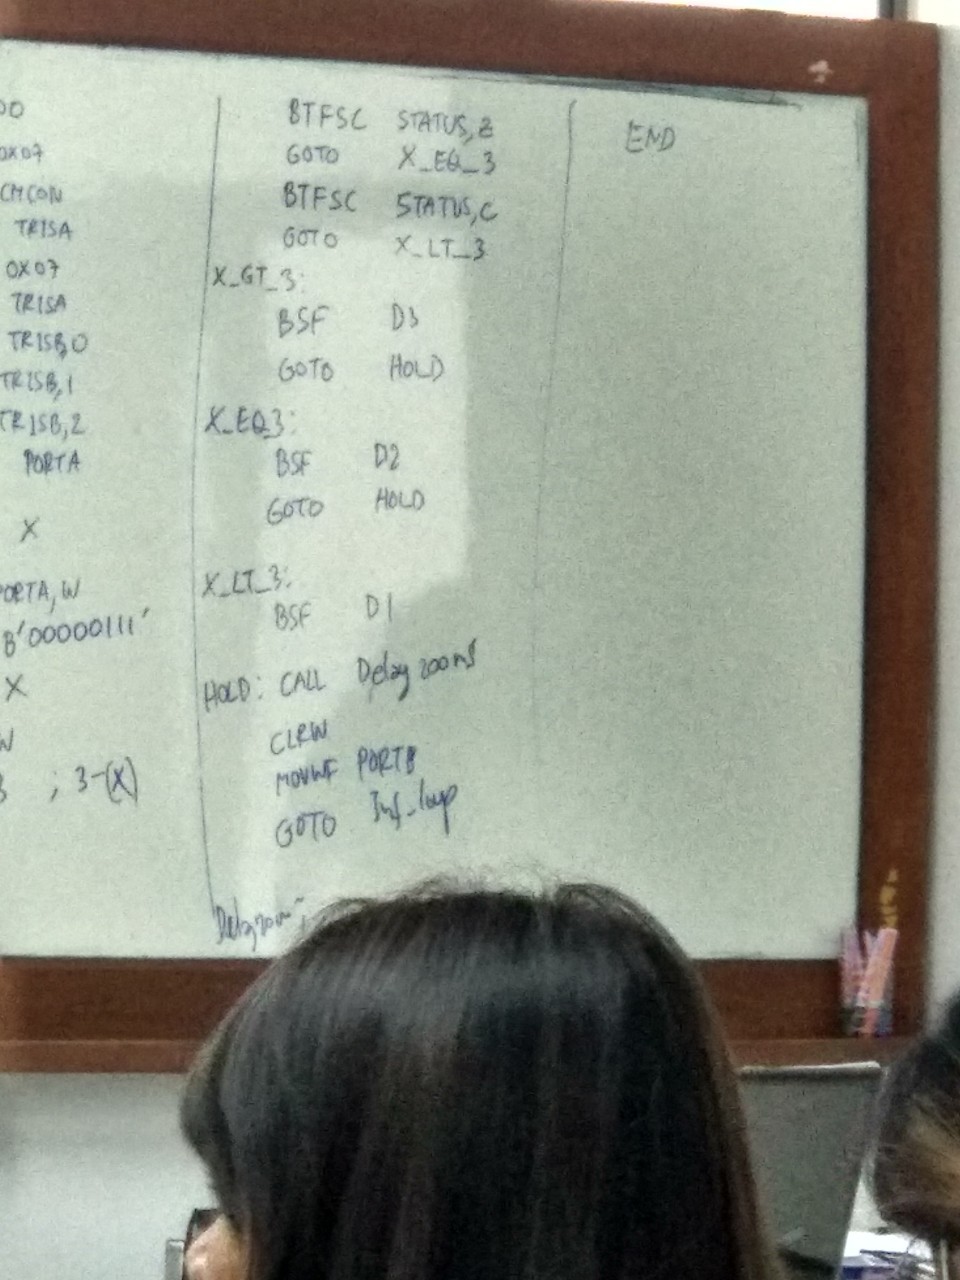 00
0X07
CMCON
TRISA
0X07
TRISA
TRISB,0
TRISB,1
TRISB,2
PORTA
X
PORTA,W
B'00000111'
X
W
3 ; 3-(X)
BTFSC STATUS,Z
GOTO X_EQ_3
BTFSC STATUS,C
GOTO X_LT_3
X_GT_3:
BSF D3
GOTO HOLD
X_EQ_3:
BSF D2
GOTO HOLD
X_LT_3:
BSF D1
HOLD: CALL Delay200ms
CLRW
MOVWF PORTB
GOTO Inf_loop
END